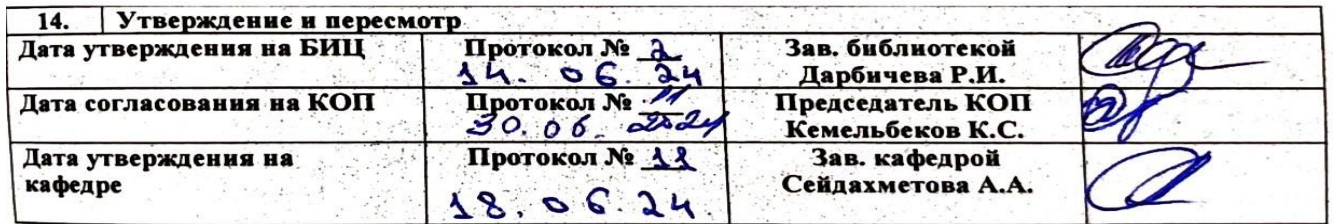 14. Утверждение и пересмотр
Дата утверждения на БИЦ
Протокол № 2
14. 06. 24
Зав. библиотекой
Дарбичева Р.И.
Дата согласования на КОП
Протокол № 11
30. 06. 2024
Председатель КОП
Кемельбеков К.С.
Дата утверждения на
кафедре
Протокол № 11
18. 06. 24.
Зав. кафедрой
Сейдахметова А.А.